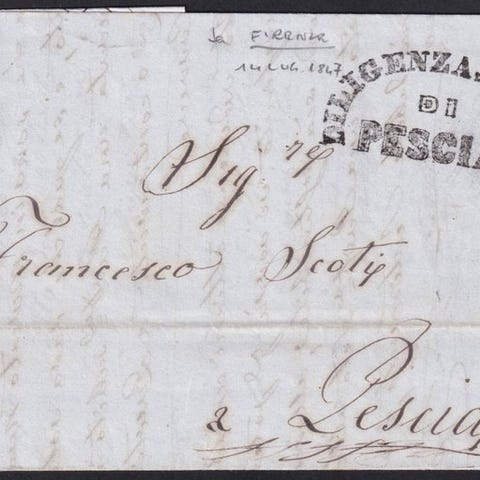 da FIRENZE
14 LUG. 1847
DILIGENZA
DI
PESCIA
Sig.re
Francesco Scoti
a Pescia